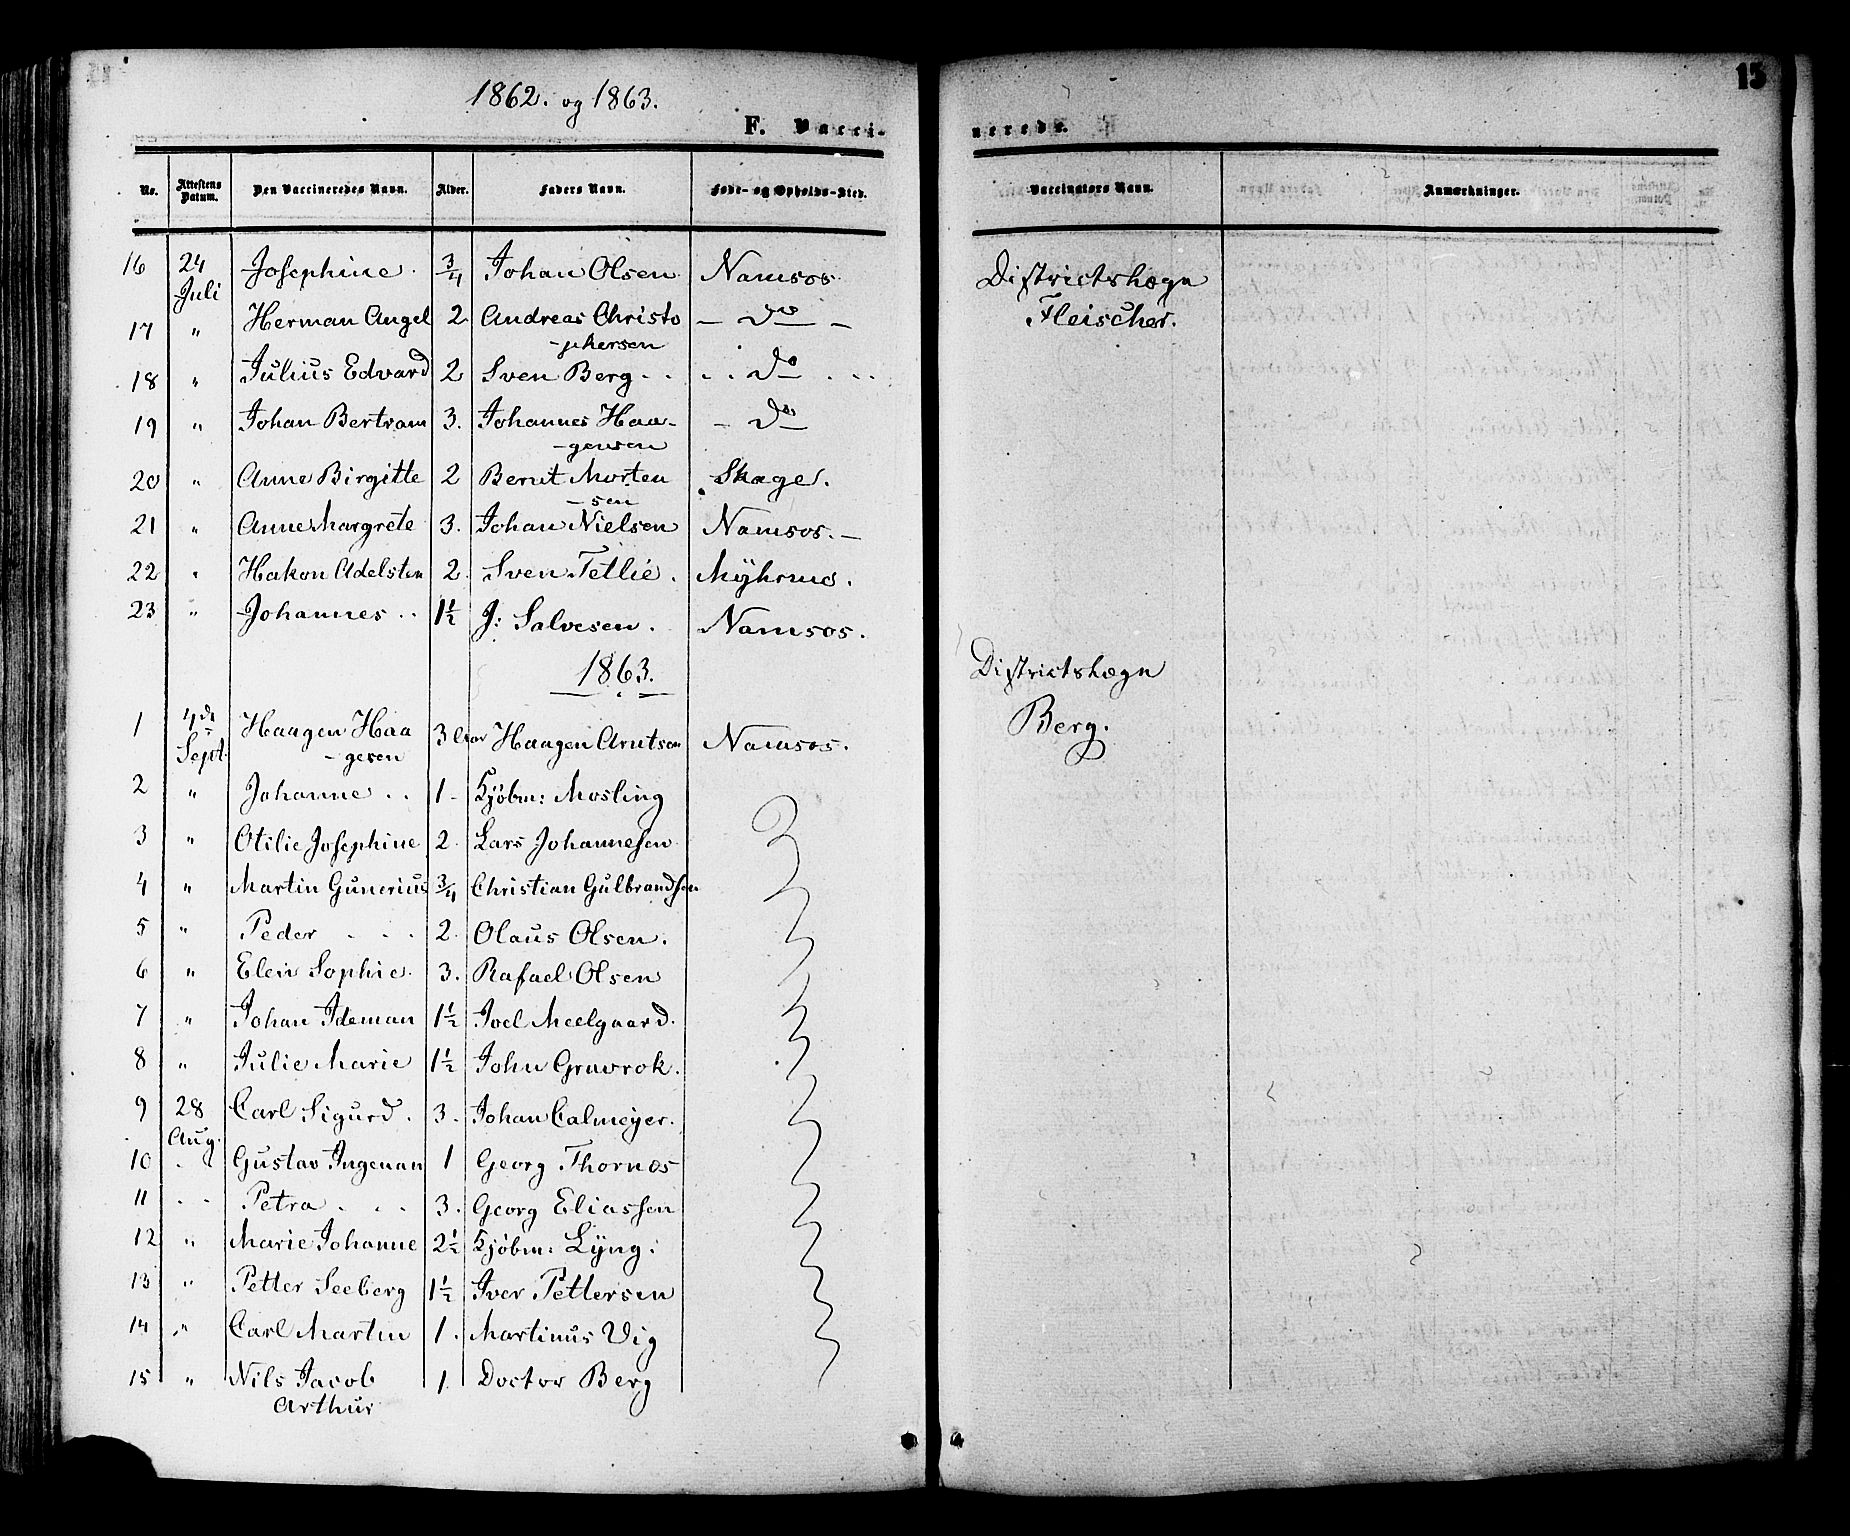 1862. og 1863.
15
F. Vacci-
nerede.
No. Attestens Datum. Den Vaccineredes Navn. Alder. Faders Navn. Føde- og Opholds-Sted. Vaccinatørs Navn. Anmærkninger.
16 24 Juli Josephine. 3/4 Johan Olsen Namsos. Districtslægn
Fleischer.
17 " Herman Angel 2 Andreas Christo - Do -
-phersen
18 " Julius Edvard 2 Sven Berg . . . . Do . . .
19 " Johan Bertram 3. Johannes Haa- - Do
-gensen
20 " Anne Birgitte 2 Bernt Morten Skage.
-sen
21 " Anne Margrete 3. Johan Nielsen Namsos. -
22 " Hakon Adelsten 2. Sven Tetlie. Myhrmo.
23 " Johannes . . 1½ J: Salvesen. Namsos.
1863.
Districtslægn
Berg.
1 4de Sept. Haagen Haa 3 Aar Haagen Arntsen Namsos.
-gesen
2 " Johanne . . 1- Kjøbm: Mosling
3 " Otilie Josephine 2. Lars Johannesen
4 " Martin Gunerius 3/4 Christian Gulbrandsen
5 " Peder . . . 2. Olaus Olsen.
6 " Elen Sophie. 3. Rafael Olsen
7 " Johan Ideman 1½ Joel Meelgaard.
8 " Julie Marie 1½ John Gravrok.
9 28 Aug. Carl Sigurd. 3. Johan Calmeyer.
10 " Gustav Ingeman 1 Georg Thornæs
11 - - Petra . . . 3. Georg Eliassen
12 " Marie Johanne 2½ Kjøbm: Lyng:
13 " Petter Seeberg 1½ Iver Pettersen
14 " Carl Martin 1. Martinus Vig
15 " Nils Jacob 1. Doctor Berg
Arthur